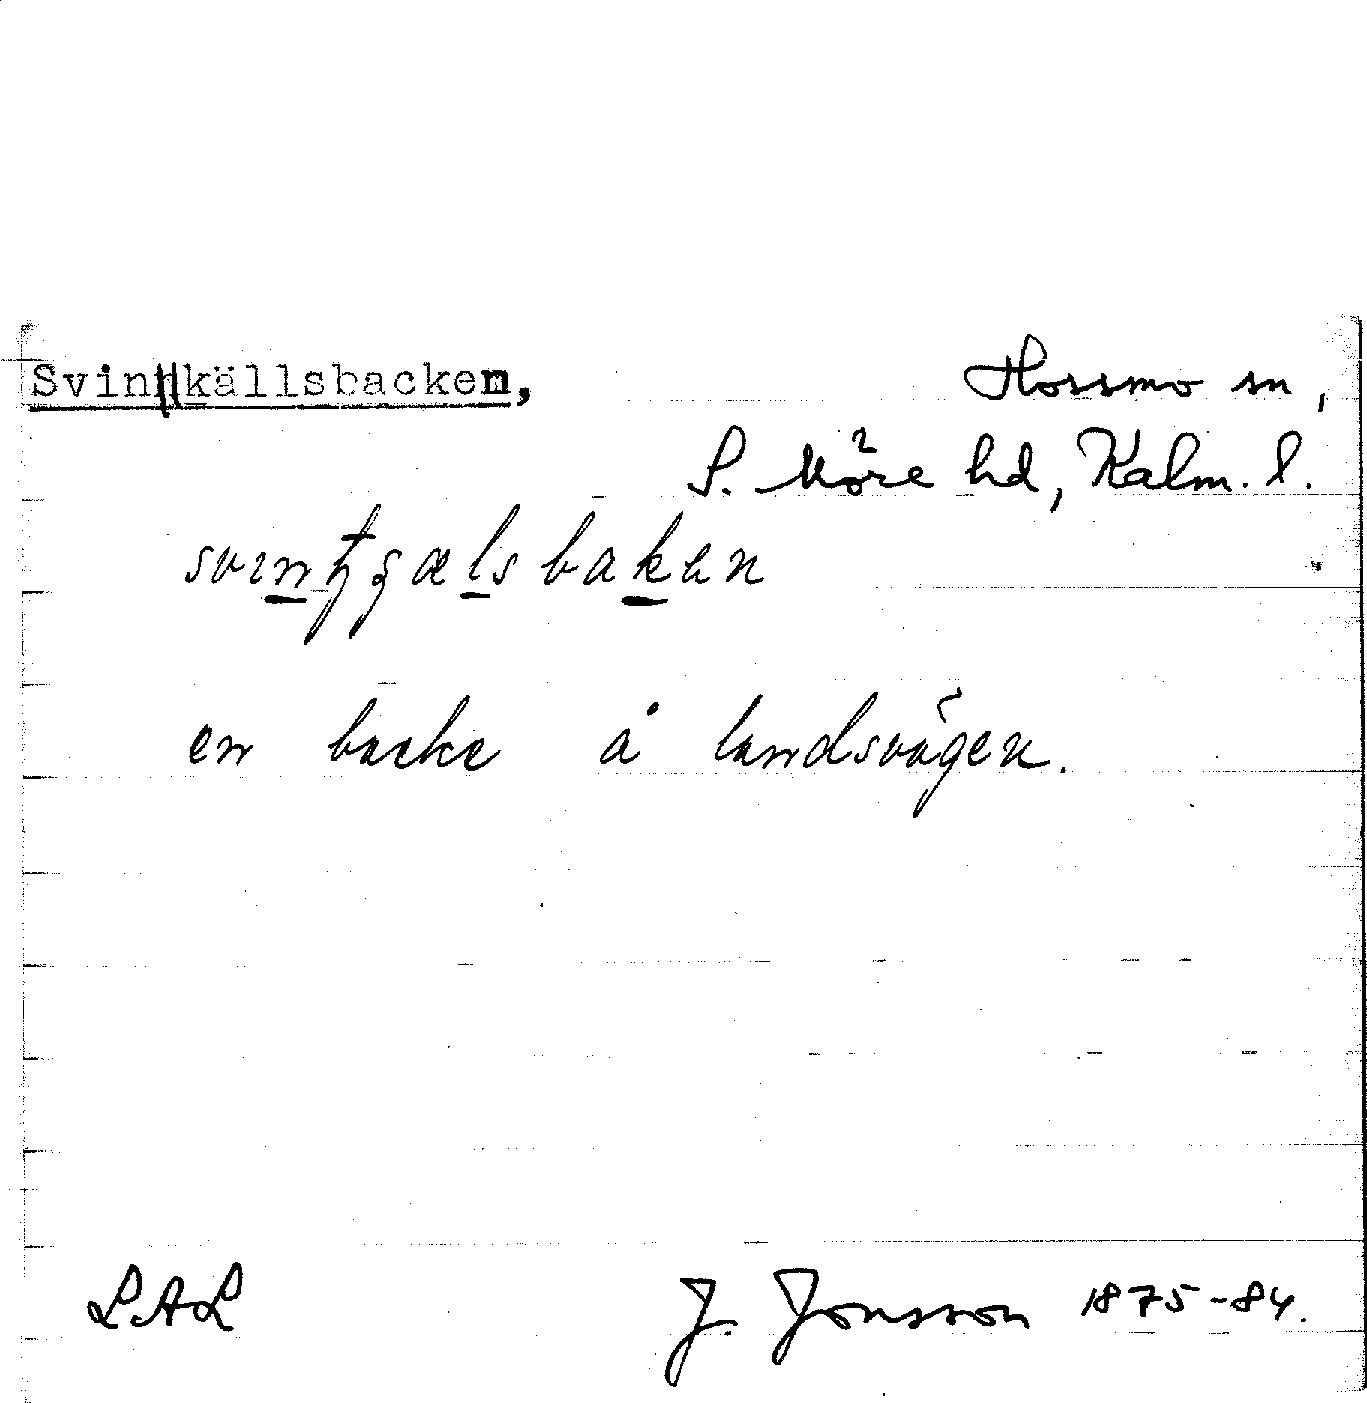 Svinkällsbacken, Hossmo sn,
S. Möre hd, Kalm. l.
en backe å landsvägen.
LAL J. Jonsson 1875-84.